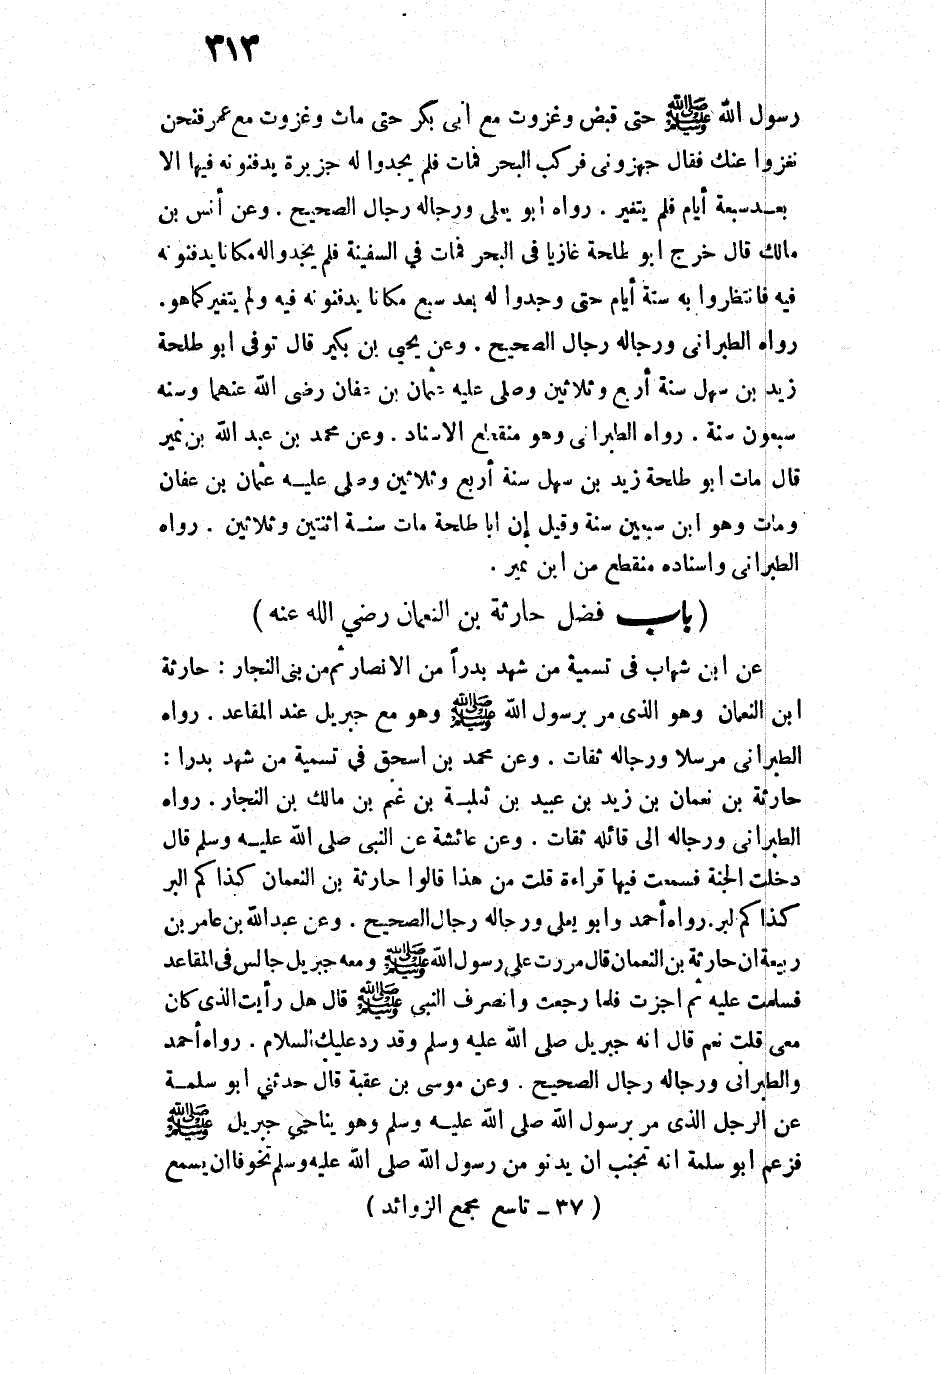 ٣١٣
رسول الله ﷺ حتى قبض وغزوت مع أبى بكر حتى مات وغزوت مع عمر فنحن
نغزوا عنك فقال جهزونى فركب البحر فمات فلم يجدوا له جزيرة يدفنونه فيها الا
بعد سبعة أيام فلم يتغير . رواه ابو يعلى ورجاله رجال الصحيح . وعن أنس بن
مالك قال خرج ابو طلحة غازيا فى البحر فمات في السفينة فلم يجدوا له مكانا يدفنونه
فيه فانتظروا به ستة أيام حتى وجدوا له بعد سبع مكانا يدفنونه فيه ولم يتغير كما هو .
رواه الطبرانى ورجاله رجال الصحيح . وعن يحيى بن بكير قال توفى ابو طلحة
زيد بن سهل سنة أربع وثلاثين وصلى عليه عثمان بن عفان رضى الله عنهما وسنه
سبعون سنة . رواه الطبرانى وهو منقطع الاسناد . وعن محمد بن عبد الله بن نمير
قال مات ابو طلحة زيد بن سهل سنة أربع وثلاثين وصلى عليه عثمان بن عفان
ومات وهو ابن سبعين سنة وقيل إن ابا طلحة مات سنة اثنتين وثلاثين . رواه
الطبرانى واسناده منقطع من ابن نمير .
( باب فضل حارثة بن النعمان رضي الله عنه )
عن ابن شهاب فى تسمية من شهد بدراً من الانصار ثم من بنى النجار : حارثة
ابن النعمان وهو الذى مر برسول الله ﷺ وهو مع جبريل عند المقاعد . رواه
الطبرانى مرسلا ورجاله ثقات . وعن محمد بن اسحق في تسمية من شهد بدرا :
حارثة بن نعمان بن زيد بن عبيد بن ثعلبة بن غنم بن مالك بن النجار . رواه
الطبرانى ورجاله الى قائله ثقات . وعن عائشة عن النبى صلى الله عليه وسلم قال
دخلت الجنة فسمعت فيها قراءة قلت من هذا قالوا حارثة بن النعمان كذا كم البر
كذا كم لبر . رواه أحمد وابو يعلى ورجاله رجال الصحيح . وعن عبدالله بن عامر بن
ربيعة ان حارثة بن النعمان قال مررت على رسول الله ﷺ ومعه جبريل جالس فى المقاعد
فسلمت عليه ثم اجزت فلما رجعت وانصرف النبى ﷺ قال هل رأيت الذى كان
معى قلت نعم قال انه جبريل صلى الله عليه وسلم وقد رد عليك السلام . رواه أحمد
والطبرانى ورجاله رجال الصحيح . وعن موسى بن عقبة قال حدثني ابو سلمة
عن الرجل الذى مر برسول الله صلى الله عليه وسلم وهو يناجي جبريل ﷺ
فزعم ابو سلمة انه تجنب ان يدنو من رسول الله صلى الله عليه وسلم تخوفا ان يسمع
( ٣٧ ــ تاسع مجمع الزوائد )